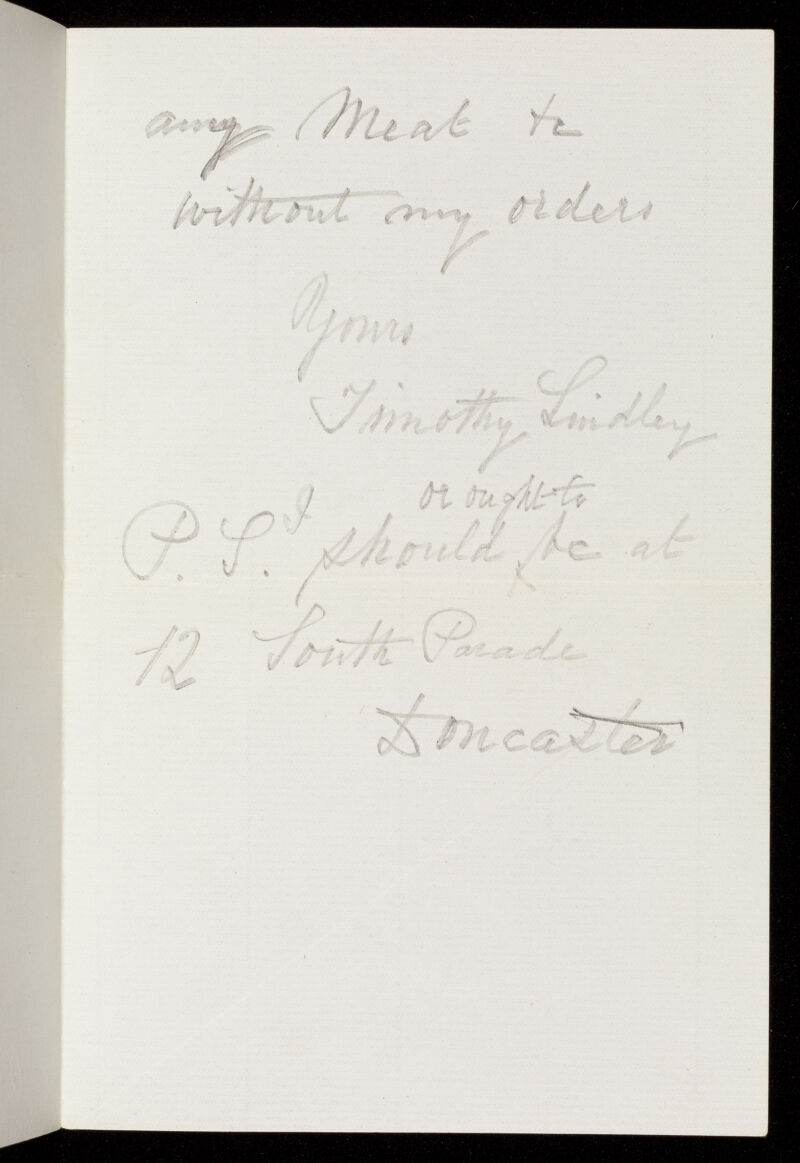 any Meat &c
without my orders
Yours
Timothy Lindley
or ought to
P. S. I should ‸ be at
12 South Parade
Doncaster